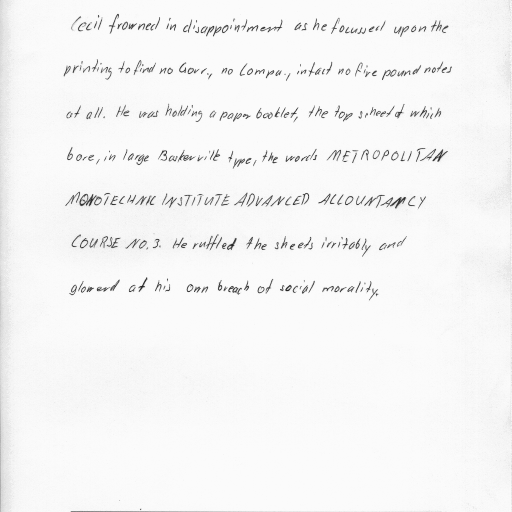 Cecil frowned in disappointment as he focussed upon the
printing to find no Govr., no Compa., infact no five pound notes
at all. He was holding a paper booklet, the top sheet of which
bore, in large Baskerville type, the words METROPOLITAN
MONOTECHNIC INSTITUTE ADVANCED ACCOUNTANCY
COURSE NO.3. He ruffled the sheets irritably and
glowered at his own breach of social morality.